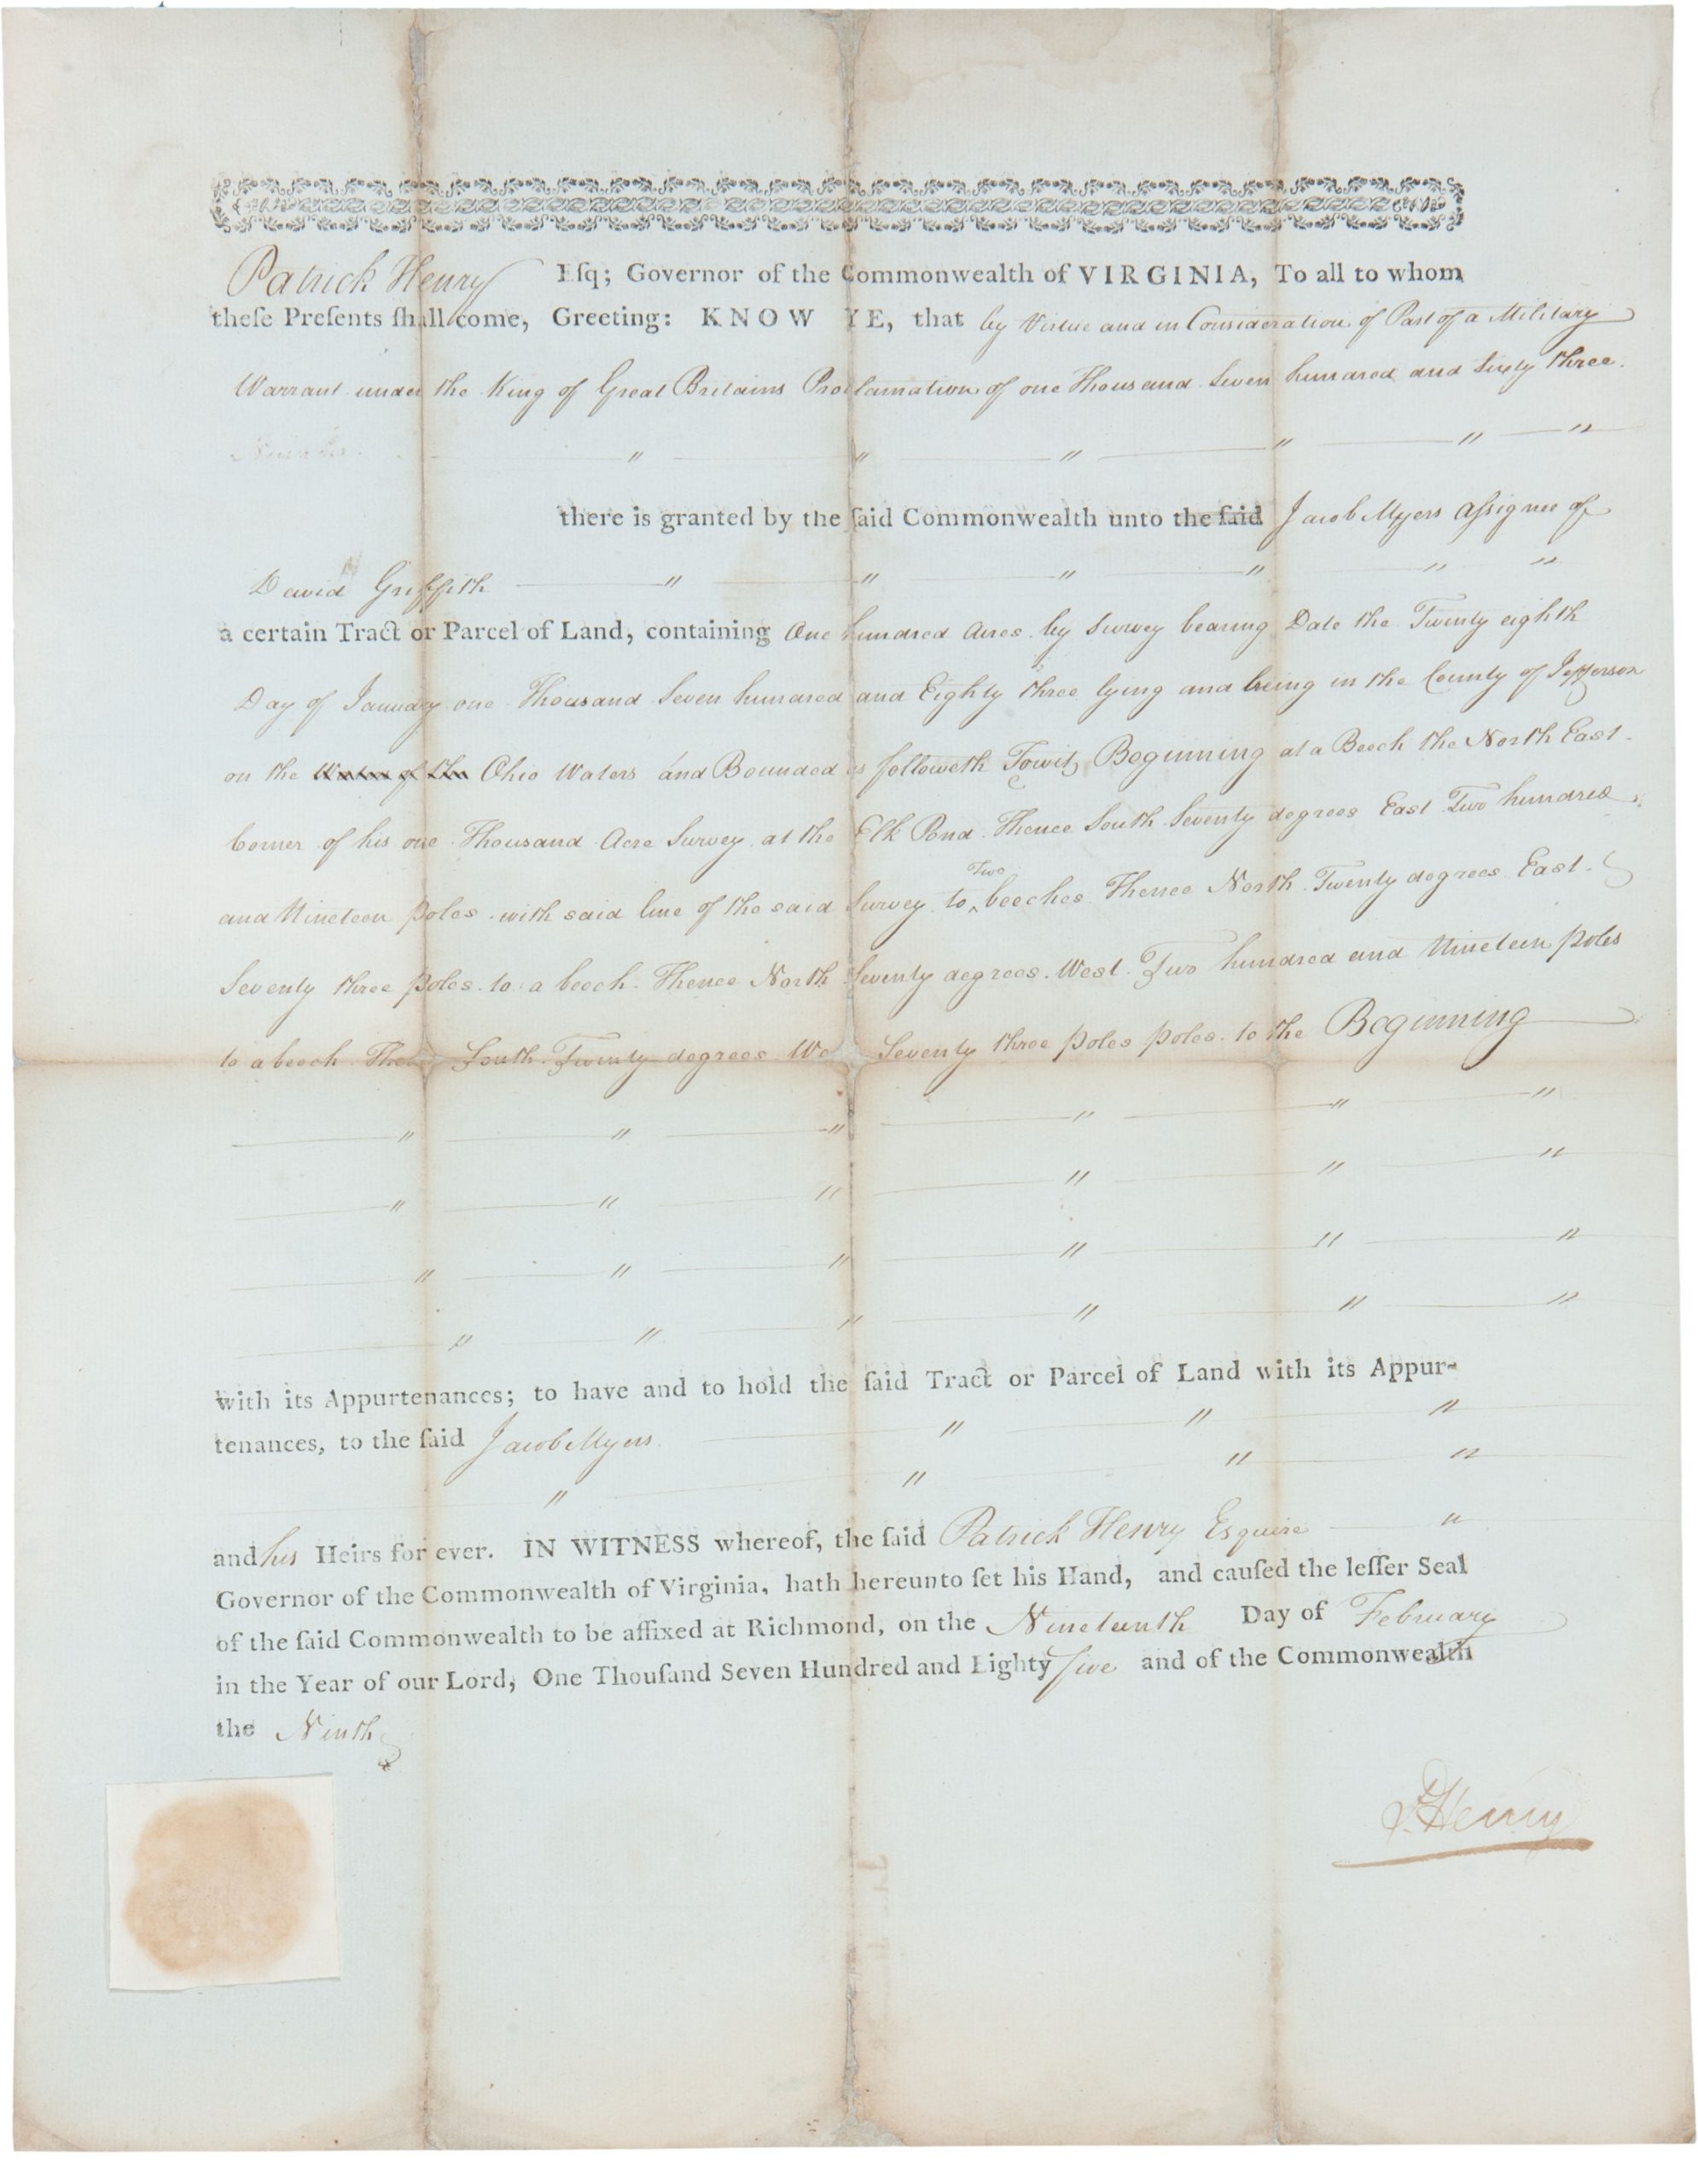 Patrick Henry Eſq; Governor of the Commonwealth of VIRGINIA, To all to whom
theſe Preſents ſhall come, Greeting: KNOW YE, that by Virtue and in Consideration of Part of a Military
Warrant under the King of Great Britains Proclamation of one Thousand Seven hundred and Sixty three.
there is granted by the ſaid Commonwealth unto the ſaid Jacob Myers Aſsignee of
David Griffith
a certain Tract or Parcel of Land, containing One hundred Acres by Survey bearing Date the Twenty eighth
Day of January one Thousand Seven hundred and Eighty three lying and being in the County of Jefferson
on the Waters of the Ohio Waters and Bounded as followeth Towit, Beginning at a Beech the North East
Corner of his one Thousand Acre Survey at the Elk Pond Thence South Seventy degrees East Two hundred
and Nineteen poles with said line of the said Survey to Two beeches Thence North Twenty degrees East
Seventy three poles to a beech Thence North Seventy degrees West Two hundred and Nineteen poles
to a beech Thence South Twenty degrees We Seventy three poles poles to the Beginning
with its Appurtenances; to have and to hold the ſaid Tract or Parcel of Land with its Appur-
tenances, to the ſaid Jacob Myers
and his Heirs for ever. IN WITNESS whereof, the ſaid Patrick Henry Esquire
Governor of the Commonwealth of Virginia, hath hereunto ſet his Hand, and cauſed the leſſer Seal
of the ſaid Commonwealth to be affixed at Richmond, on the Nineteenth Day of February
in the Year of our Lord, One Thouſand Seven Hundred and Eighty five and of the Commonwealth
the Ninth
P. Henry